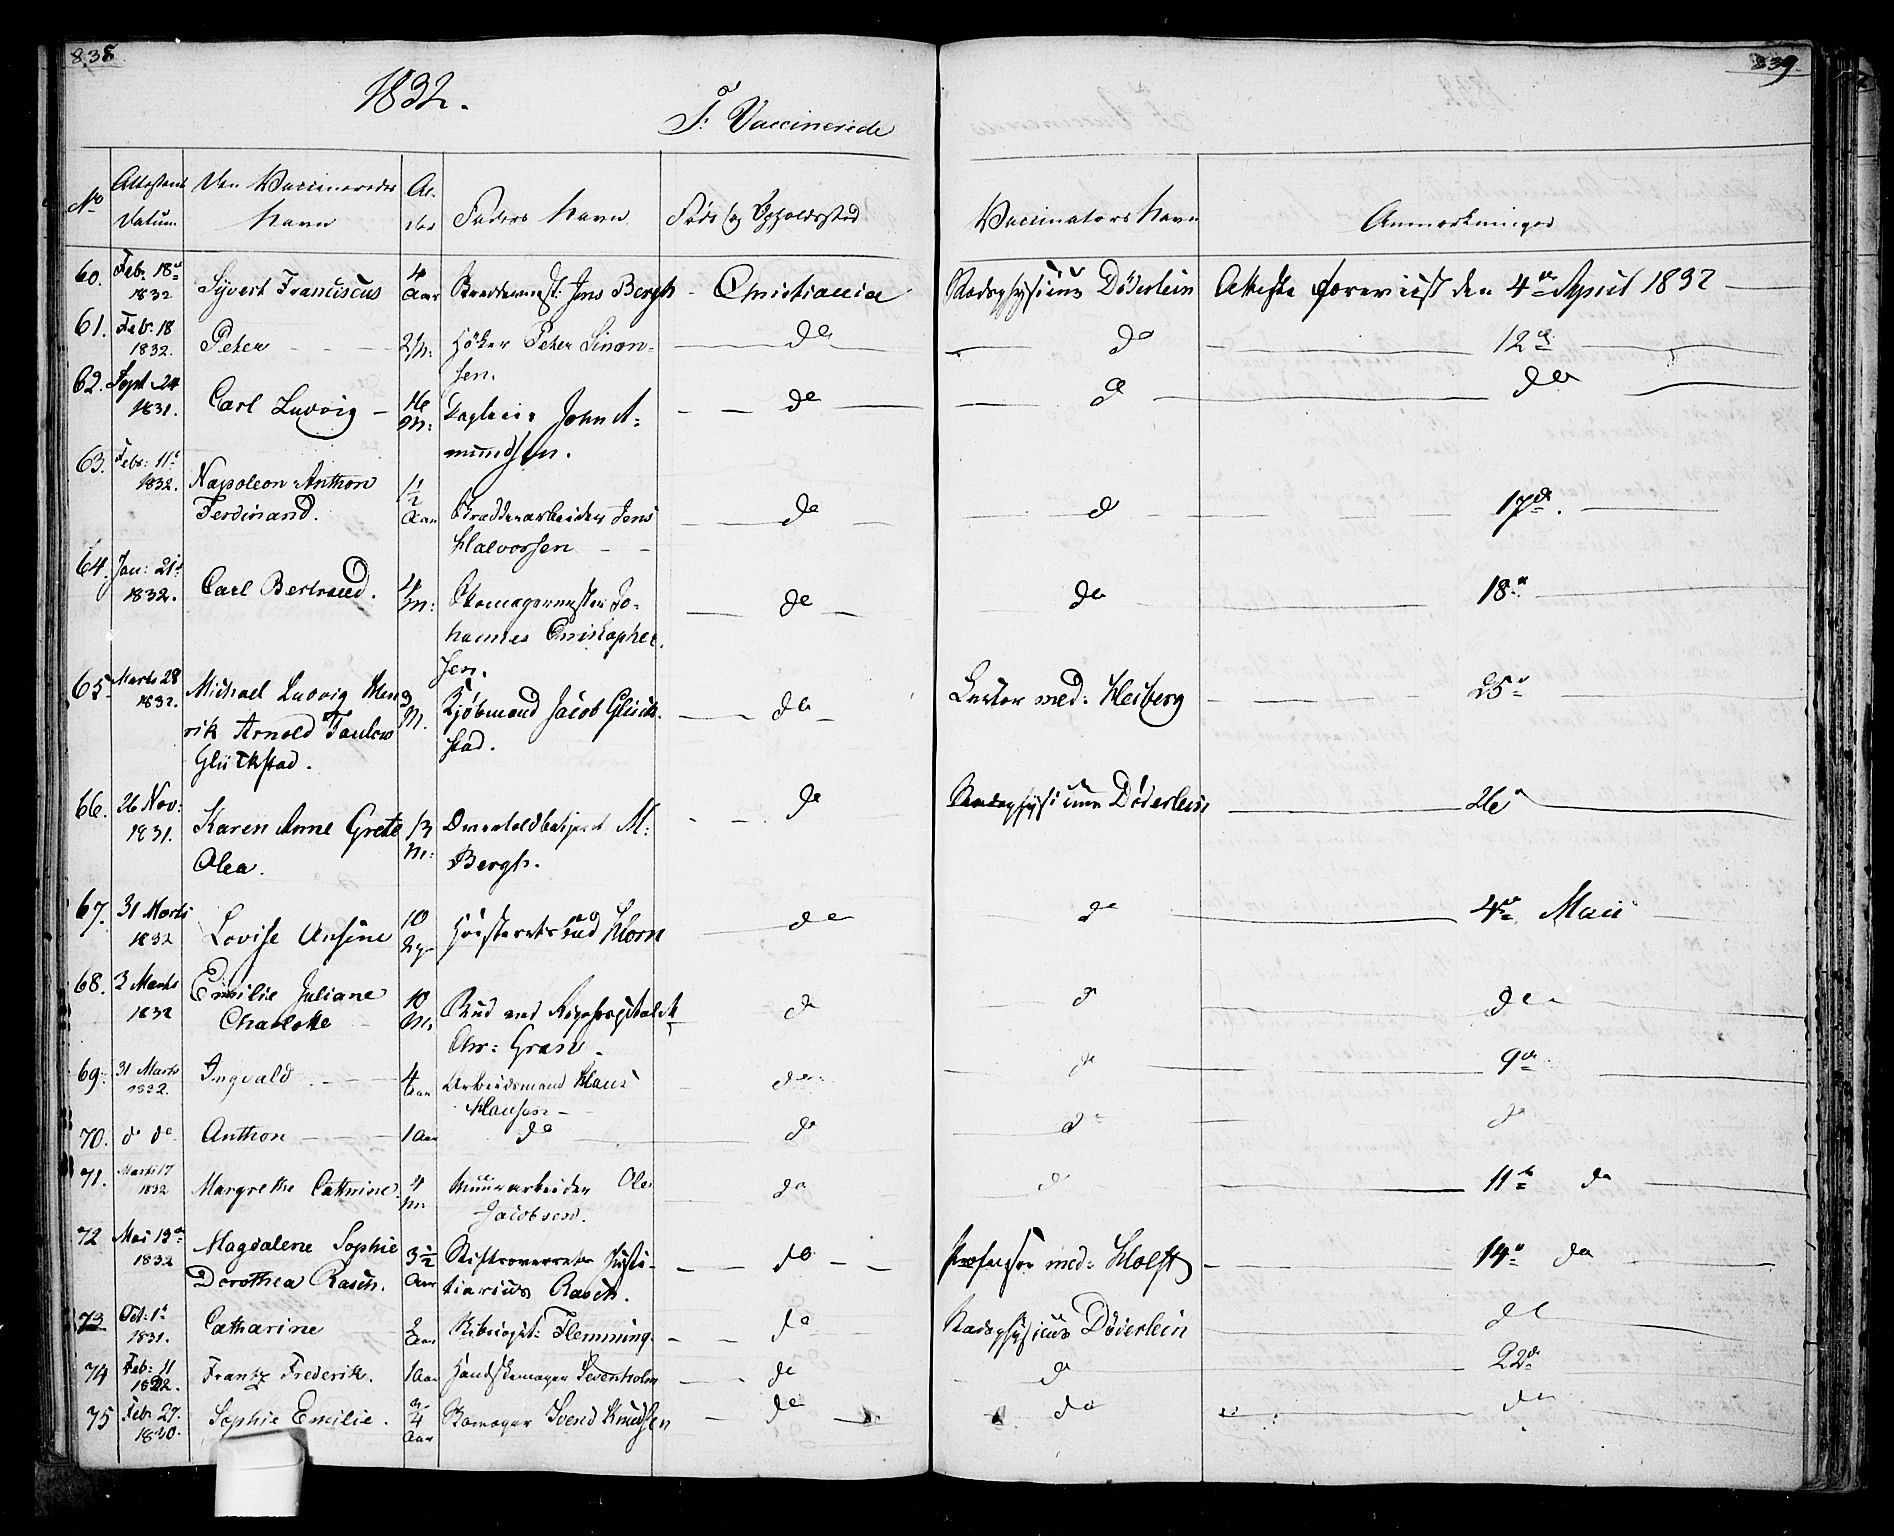 838
839.
1832.
F: Vaccinerede
No Attestens Datum. Den Vaccineredes Navn Al- der Faders Navn Føde og Opholdssted Vaccinators Navn Anmærkninger
60. Feb. 18de 1832 Syvert Franciscus 4 Aar Jens Bergh - Christiania Stadsphysicus Døderlein Atteste foreviist den 4de April 1832
61. Feb. 18 1832. Peter 2 M: Höker Peter Simon- sen. do do 12te
62. Sept 24 1831. Carl Ludvig 16 M: John A- mundsen. do do do
63. Febr: 11te 1832. Napoleon Anthon Ferdinand. 1 1/2 Aar Jens Halvorsen do do 17de.
64. Jan: 21de 1832. Carl Bertrand. 4 M: Skomagermester Jo- hannes Christopher- sen. do do 18de
65. Marts 28 1832. Michael Ludvig Hen- rik Arnold Faulow Glückstad. 3 M. Kjöbmand Jacob Glück- stad. do Lector med: Heiberg 25de
66. 26 Nov: 1831. Karen Anne Grete Olea. 13 M: M: Bergh. do Stadsphysicus Døderlein 26de
67. 31 Marts 1832 Lovise Ansine 10 Høisterets Bud Horn do do 4de Maii
68. 3 Marts 1832 Emilie Juliane Charlotte 10 M: Bud ved Rigshospitalet Chr: do do do
69. 31 Marts 1832. Ingvald 4 Aar Arbeidsmand Hans Hansen do do 9de
70. do do Anthon 1 Aar do do do do
71. Marts 17 1832 Margrethe Cathrine. 4 M: Muurarbeider Ole Jacobsen. do do 11te do
72 Mai 13de 1832 Magdalene Sophie Dorothea Rasch. 3 1/2 Aar Stiftsoverrets Justi- tiarius Rasch. do Professor med: Holst 14de do
73 Oct: 1te 1831. Catharine 2 Aar Flemming do Stadsphysicus Døderlein do
74 Feb: 11 1832. Frantz Frederik. 1 Aar Handskemager Sevenholm do do 22de
75 Feb: 27. 1830. Sophie Emilie. 4 Aar Svend Knudsen do do do